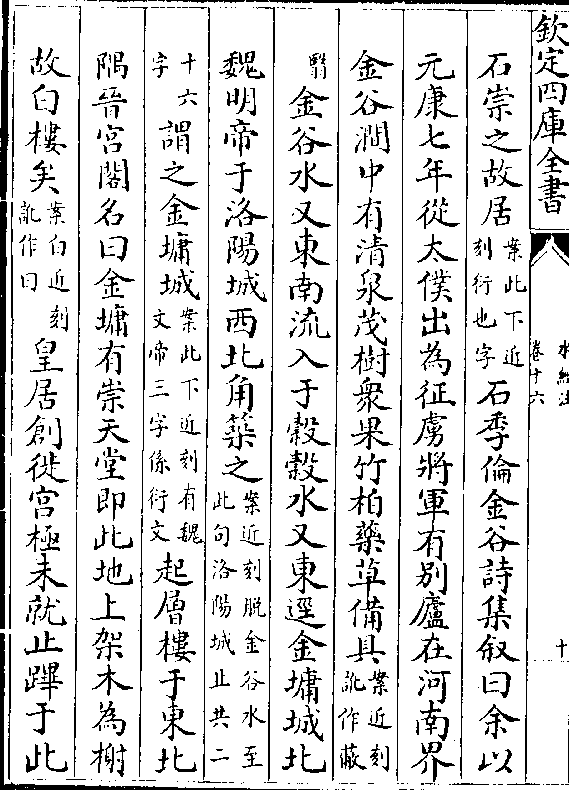 欽定四庫全書
水經注
卷十六
十
石崇之故居案此下近刻衍也字石季倫金谷詩集叙曰余以
元康七年從太僕出為征虜將軍有別廬在河南界
金谷澗中有清泉茂樹衆果竹柏藥草備具案近刻訛作蔽
翳金谷水又東南流入于穀穀水又東逕金墉城北
魏明帝于洛陽城西北角築之案近刻脱金谷水至此句洛陽城止共二
十六字謂之金墉城案此下近刻有魏文帝三字係衍文起層樓于東北
隅晉宮閣名曰金墉有崇天堂即此地上架木為榭
故白樓矣案白近刻訛作曰皇居創徙宮極未就止蹕于此